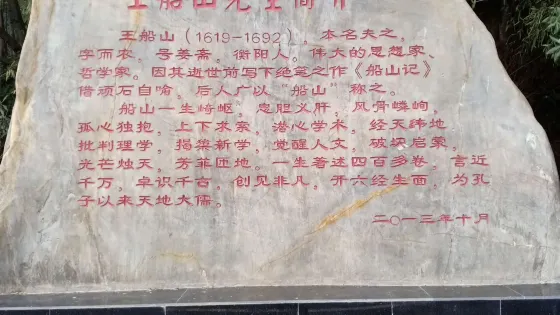 王船山先生简介
王船山（1619-1692）。本名夫之，
字而农，号姜斋。衡阳人。伟大的思想家、
哲学家。因其逝世前写下绝笔之作《船山记》
借顽石自喻。后人广以“船山”称之。
船山一生崎岖，忠胆义肝，风骨嶙峋，
孤心独抱。上下求索。潜心学术。经天纬地
批判理学，揭橥新学，觉醒人文，破块启蒙，
光芒烛天，芳菲匝地。一生着述四百多卷。言近
千万，卓识千古。创见非凡。开六经生面，为孔
子以来天地大儒。
二〇一三年十月